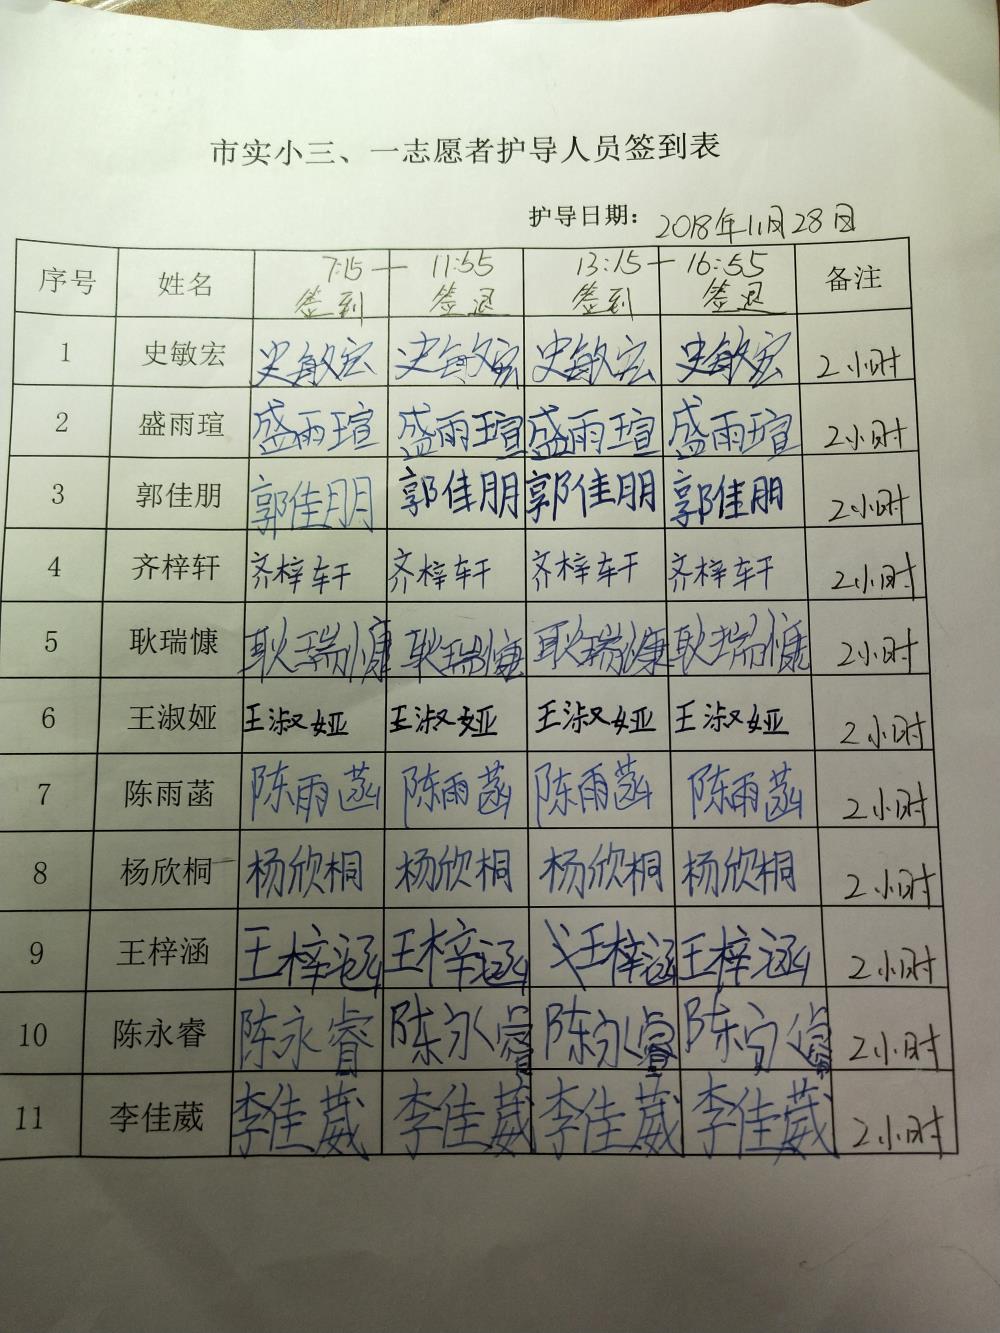 市实小三、一志愿者护导人员签到表
护导日期: 2018年11月28日
序号 姓名 7:15 — 11:55 13:15 — 16:55 备注
签到 签退 签到 签退
1 史敏宏 史敏宏 史敏宏 史敏宏 史敏宏 2小时
2 盛雨瑄 盛雨瑄 盛雨瑄 盛雨瑄 盛雨瑄 2小时
3 郭佳朋 郭佳朋 郭佳朋 郭佳朋 郭佳朋 2小时
4 齐梓轩 齐梓轩 齐梓轩 齐梓轩 齐梓轩 2小时
5 耿瑞慷 耿瑞慷 耿瑞慷 耿瑞慷 耿瑞慷 2小时
6 王淑娅 王淑娅 王淑娅 王淑娅 王淑娅 2小时
7 陈雨菡 陈雨菡 陈雨菡 陈雨菡 陈雨菡 2小时
8 杨欣桐 杨欣桐 杨欣桐 杨欣桐 杨欣桐 2小时
9 王梓涵 王梓涵 王梓涵 王梓涵 王梓涵 2小时
10 陈永睿 陈永睿 陈永睿 陈永睿 陈永睿 2小时
11 李佳葳 李佳葳 李佳葳 李佳葳 李佳葳 2小时